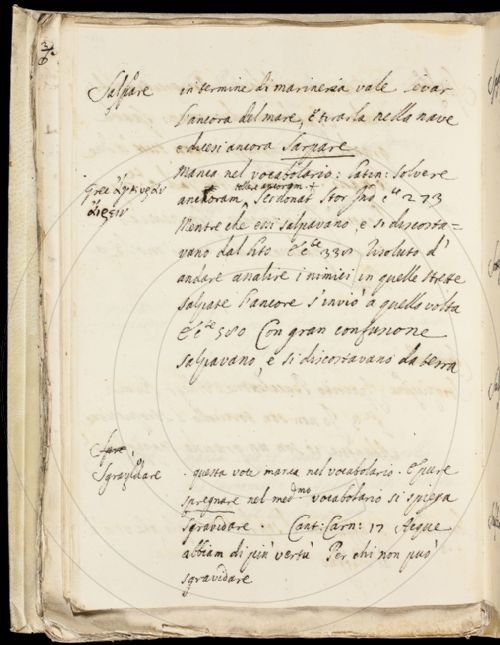 Salpare in termine di marineria vale levar
l'ancora dal mare, e tirarla nella nave
e dicesi ancora Sarpare
Manca nel vocabolario: latin: solvere
anchoram tollere anchoram Serdonat Stor Ind c.te 273
Mentre che essi salpavano e si discosta=
vano dal lito E c.te 338 Risoluto d'
andare assalire i nimici in quelle strette
salpate l'ancore s'inviò a quella volta
E c.te 580 Con gran confusione
salpavano, e si discostavano da terra
Sgravidare questa voce manca nel vocabolario. E pure
spregnare nel med.mo vocabolario si spiega
sgravidare. Cant: Carn: 17 Acque
abbiam di più vertù Per chi non può
sgravidare